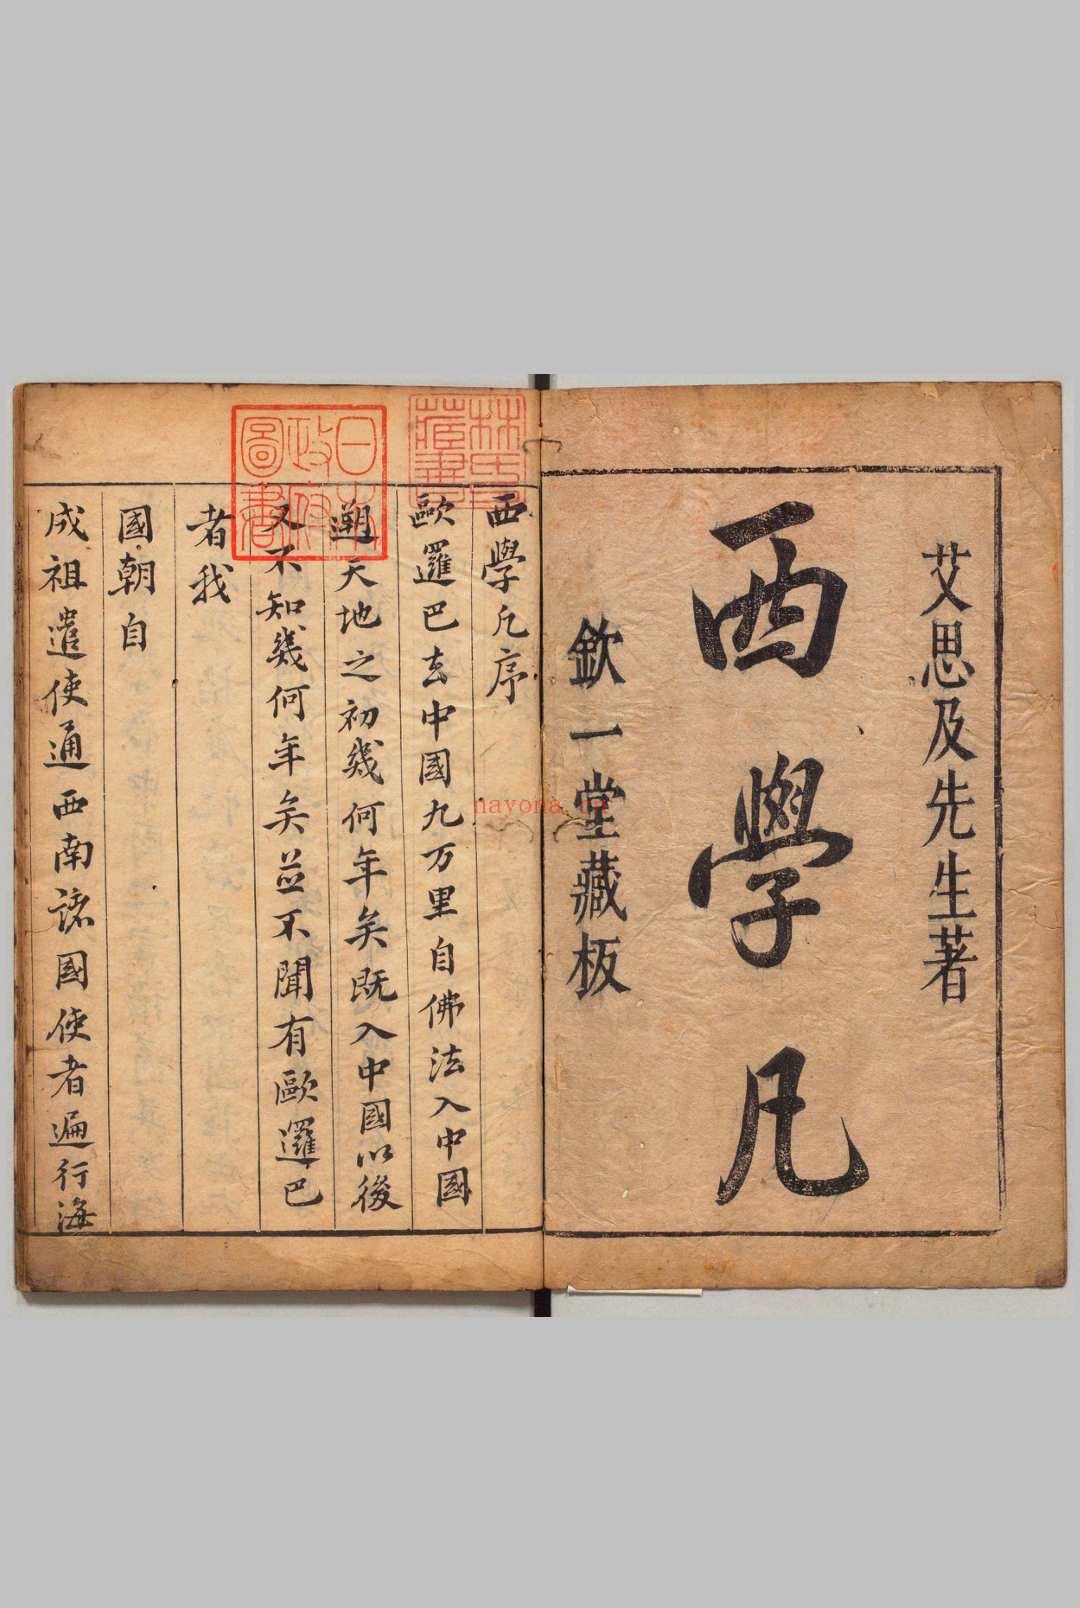 艾思及先生著
西學凡
欽一堂藏板
西學凡序
歐邏巴去中國九万里自佛法入中國
遡天地之初幾何年矣既入中國以後
又不知幾何年矣並不聞有歐邏巴
者我
國朝自
成祖遣使通西南諸國使者遍行海
林氏藏書
日本政府圖書